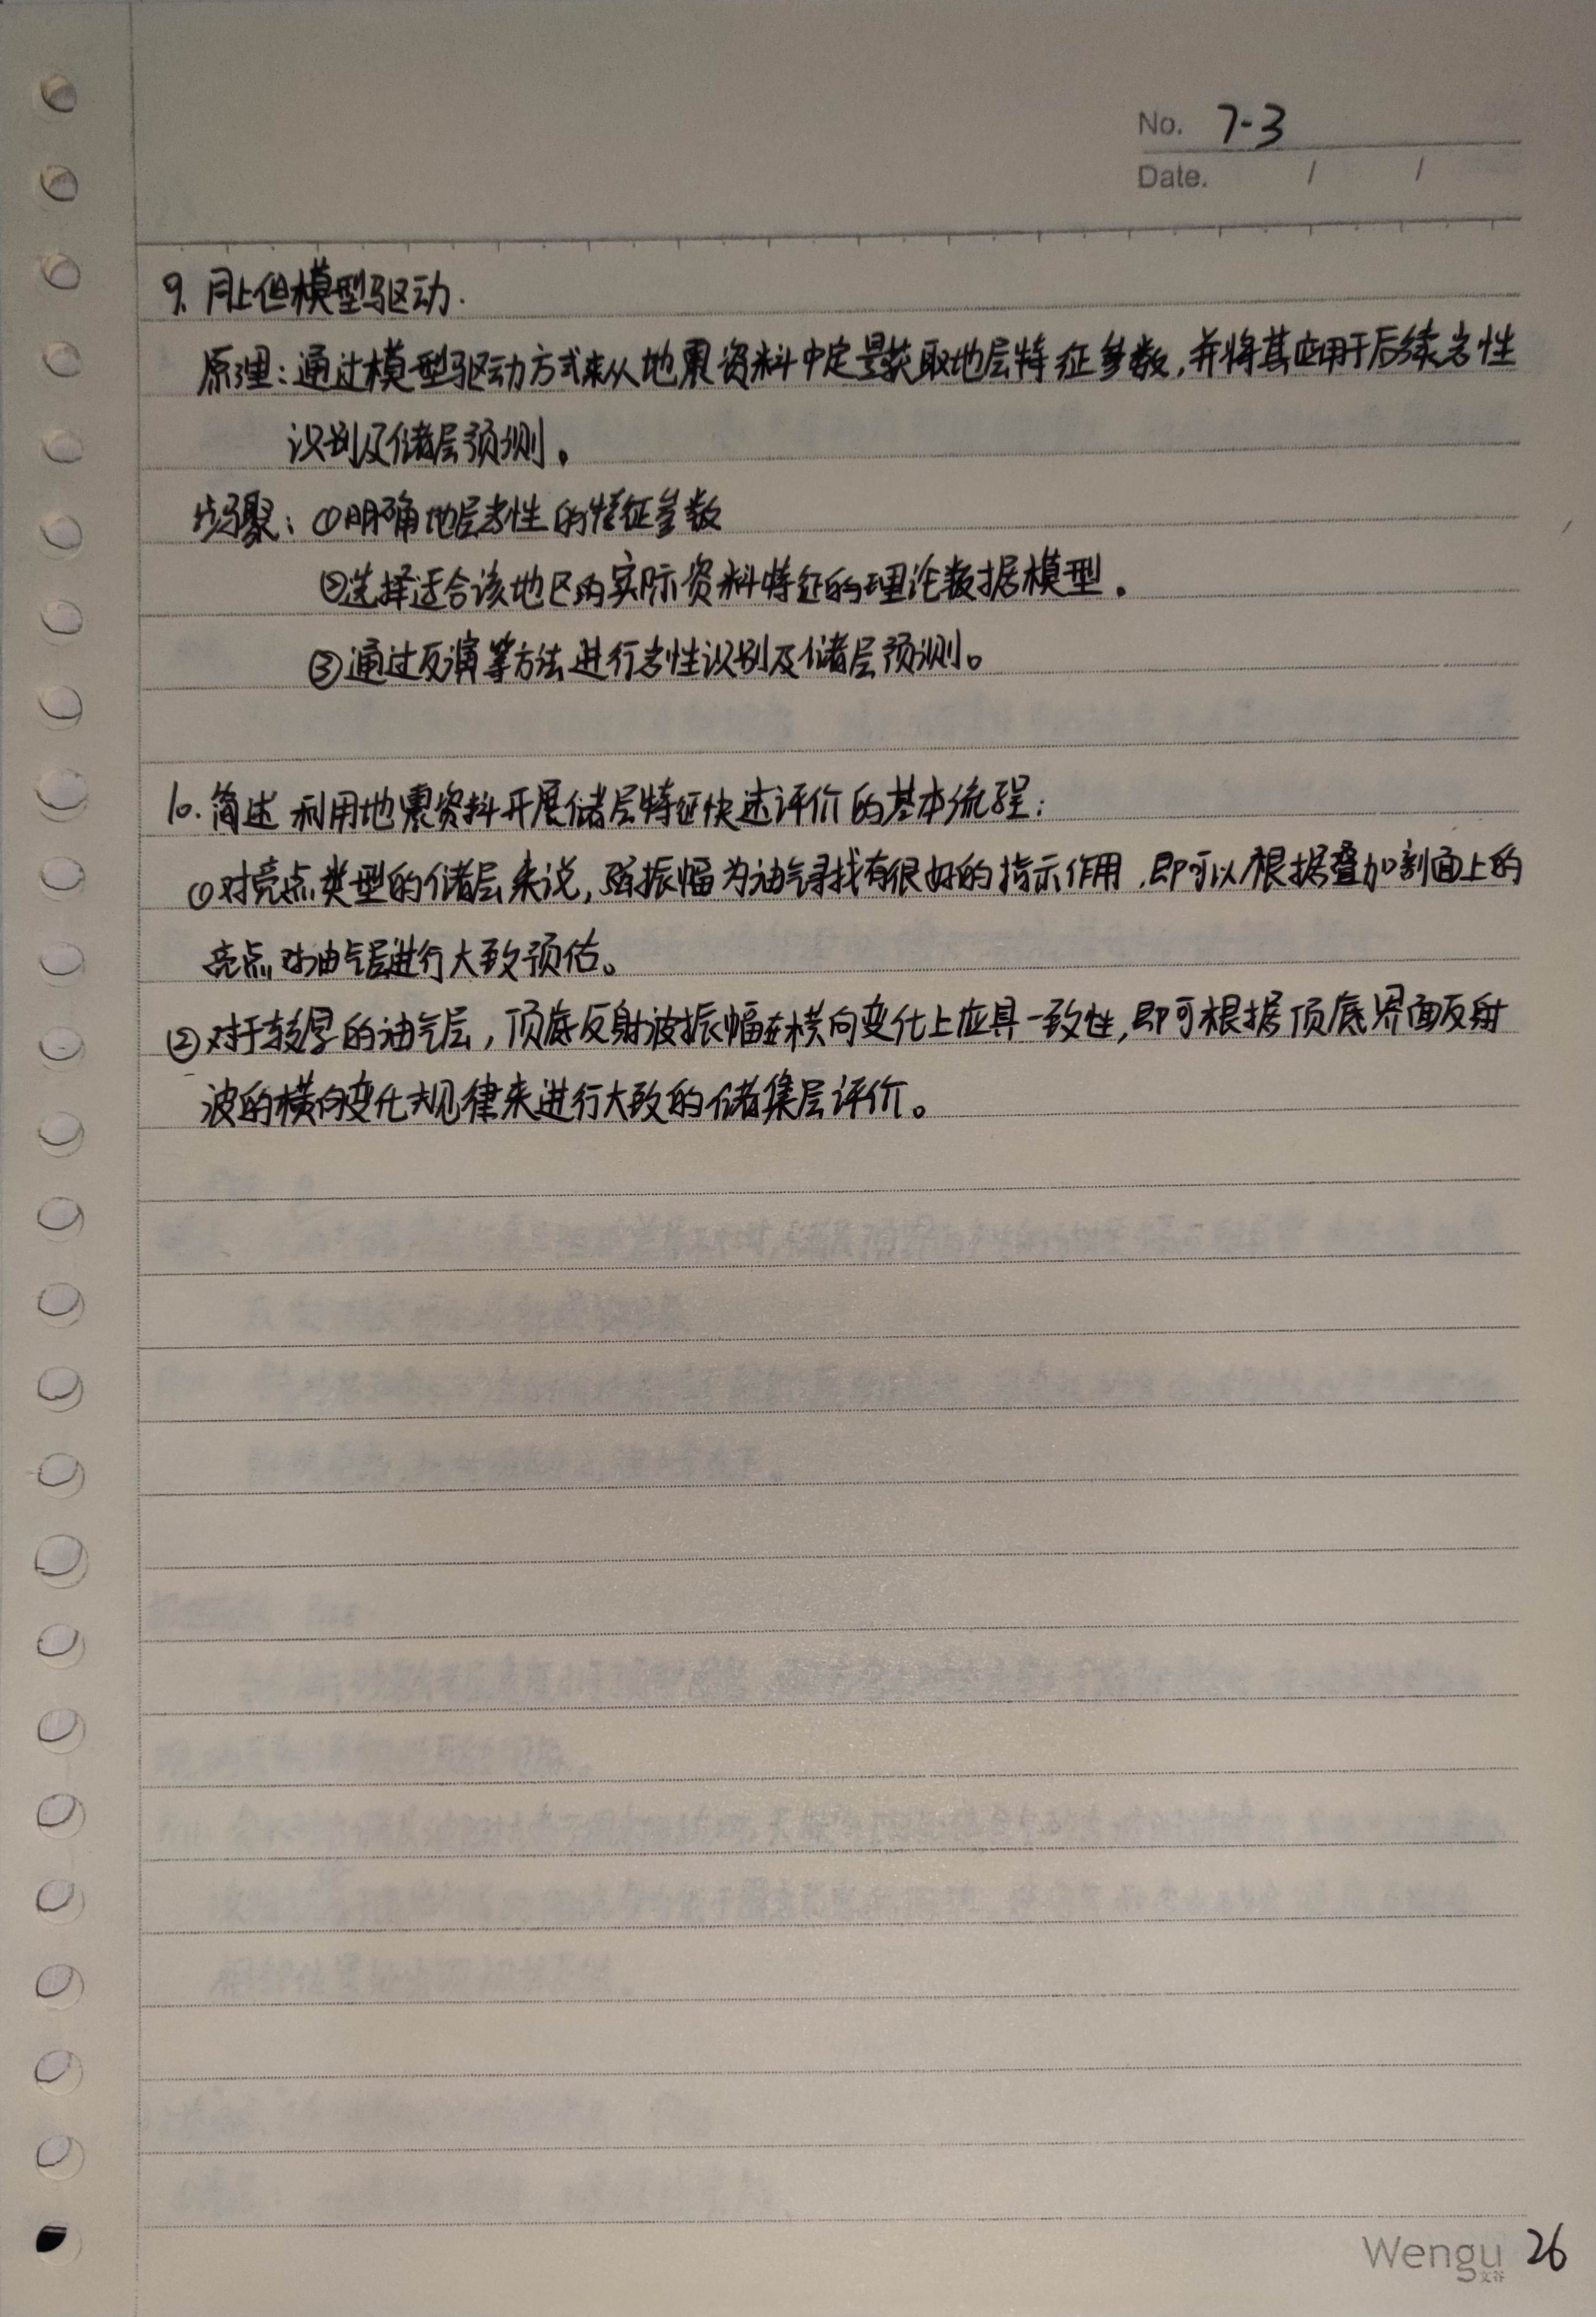 No. 7-3
Date. / /
9. 模型驱动.
原理：通过模型驱动方式来从地震资料中定量获取地层特征参数，并将其应用于后续岩性
识别及储层预测。
步骤：①明确地层岩性的特征参数
②选择适合该地区的实际资料特征的理论数据模型。
③通过反演等方法进行岩性识别及储层预测。
10. 简述利用地震资料开展储层特征快速评价的基本流程：
①对亮点类型的储层来说，强振幅为油气寻找有很好的指示作用，即可以根据叠加剖面上的
亮点对油气层进行大致预估。
②对于较厚的油气层，顶底反射波振幅在横向变化上应具一致性，即可根据顶底界面反射
波的横向变化规律来进行大致的储集层评价。
Wengu 26
文谷